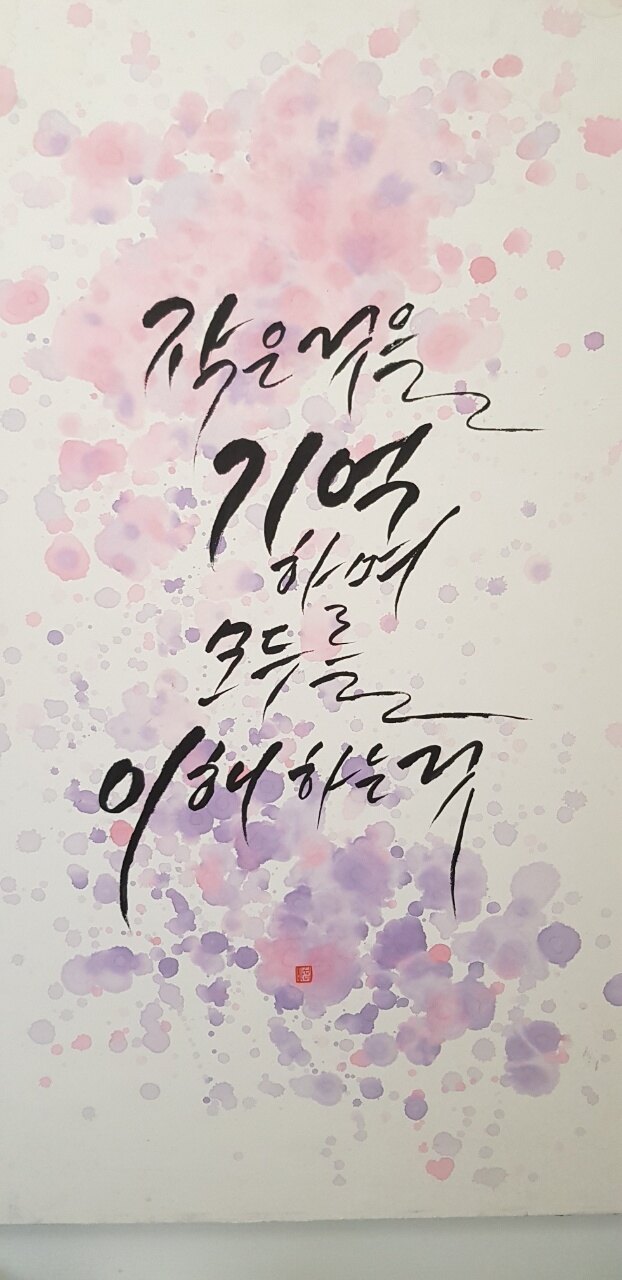 작은것을
기억
하며
모두를
이해하는것